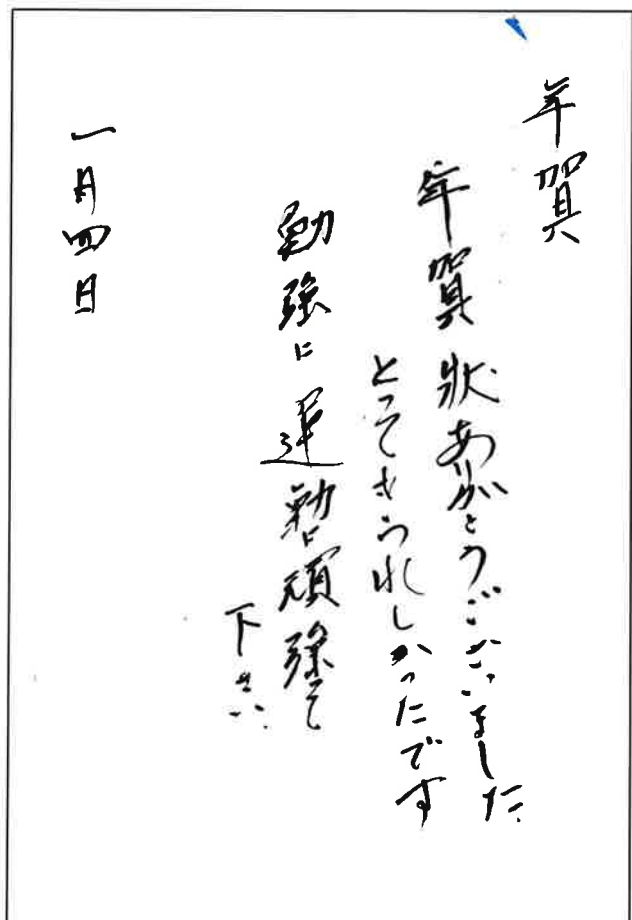 年賀
年賀状ありがとうございました
とってもうれしかったです
勉強に運動に頑張って
下さい
一月四日